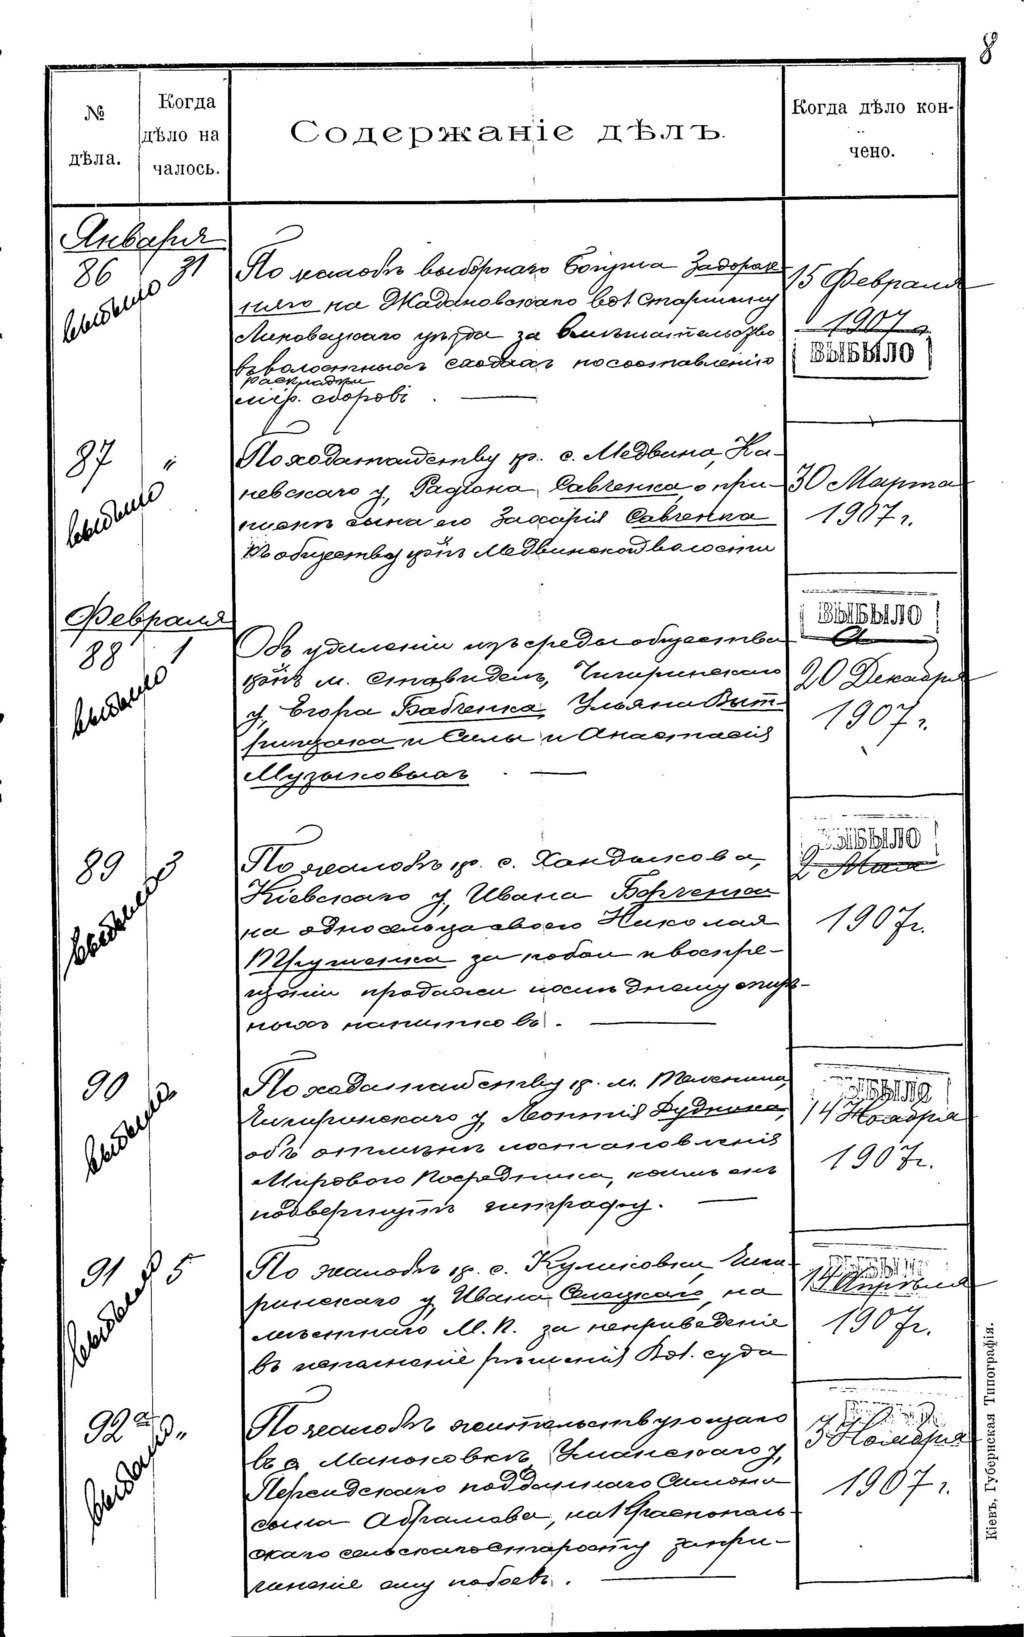 8
№ дѣла.
Когда дѣло началось.
Содержаніе дѣлъ.
Когда дѣло кончено.
Января
86 31
выбыло
По жалобѣ выборнаго
на Жадановскаго вол. Старшину
Липовецкаго уѣзда за вмѣшательство
въ волостныхъ сходахъ по составленію
раскладки
мір. сборовъ. —
15 Февраля
1907 г.
ВЫБЫЛО
87 "
выбыло
По ходатайству кр. с. Медвина, Ка-
невскаго у, Радіона Савченка, о при-
пискѣ сына его Захарія Савченка
къ обществу кр-нъ Медвинской волости
30 Марта
1907 г.
ВЫБЫЛО
Февраля
88 1
выбыло
Объ удаленіи изъ среды общества
кр-нъ м. Ставидель, Чигиринскаго
у, Егора Бабченка, Ульяна Выт-
и Силы и Анастасія
Музыковыхъ. —
20 Декабря
1907 г.
ВЫБЫЛО
89 3
выбыло
По жалобѣ кр. с. Хандыкова,
Кіевскаго у, Ивана Борченка
на односельца своего Николая
за побои и воспре-
щеніи продажи послѣднему спирт-
ныхъ напитковъ. —
2 Мая
1907 г.
ВЫБЫЛО
90
выбыло
По ходатайству кр. м. Теленина,
Чигиринскаго у, Леонтія Рудника,
объ отмѣнѣ постановленія
Мирового Посредника, коимъ онъ
подвергнутъ штрафу. —
14 Ноября
1907 г.
ВЫБЫЛО
91 5
выбыло
По жалобѣ кр. с. Куликовки, Чиги-
ринскаго у, Ивана Селецкаго, на
мѣстнаго М. П. за неприведеніе
въ исполненіе рѣшенія Вол. суда
14 Апрѣля
1907 г.
92а "
выбыло
По жалобѣ жительствующаго
въ с. Маньковкѣ, Уманскаго у,
Персидскаго подданнаго Симона
сына Абрамова, на Краснополь-
скаго сельскаго Старосту за при-
чиненіе ему побоевъ. —
3 Ноября
1907 г.
Кіевъ, Губернская Типографія.